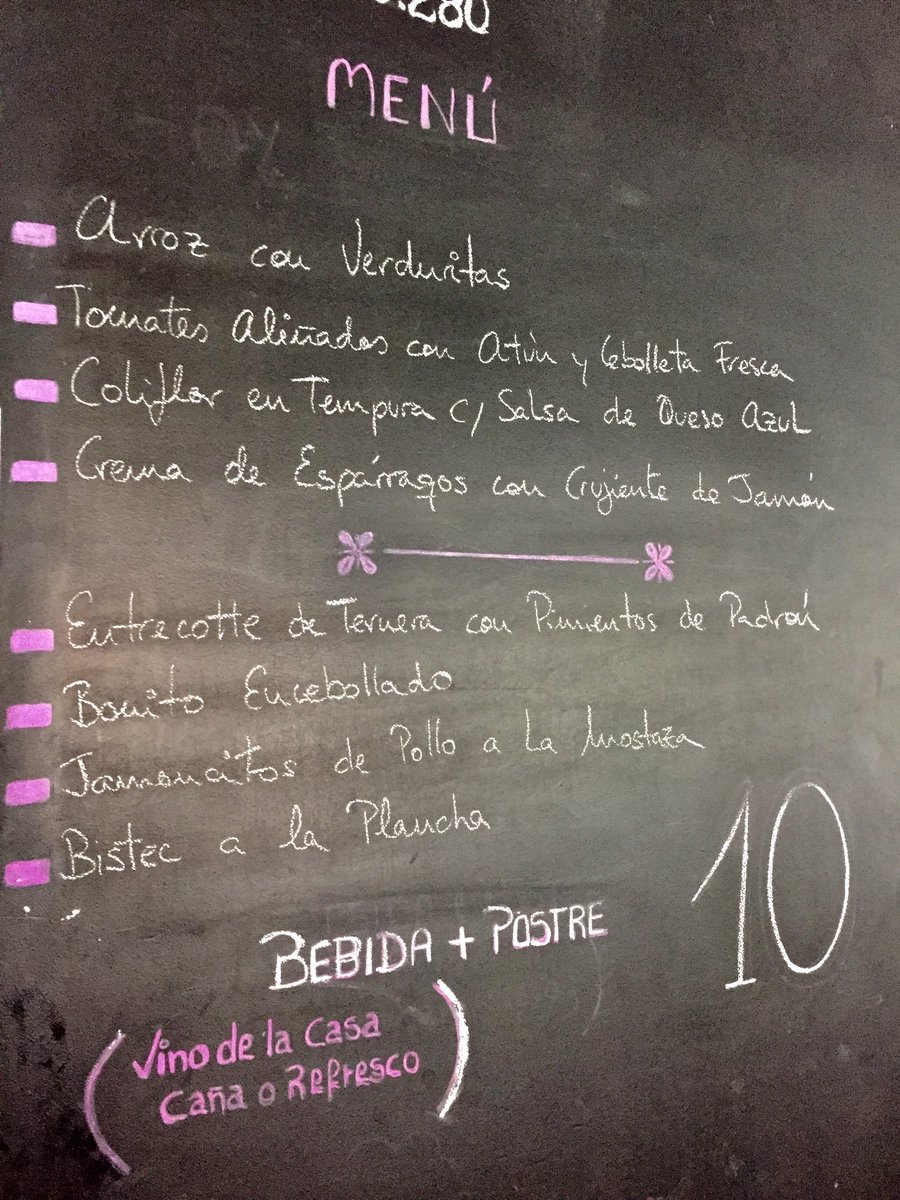 .280
MENÚ
Arroz con Verduritas
Tomates Aliñados con Atún y Cebolleta Fresca
Coliflor en Tempura c/ Salsa de Queso Azul
Crema de Espárragos con Crujiente de Jamón
Entrecotte de Ternera con Pimientos de Padrón
Bonito Encebollado
Jamoncitos de Pollo a La Mostaza
Bistec a la Plancha
10
BEBIDA + POSTRE
(Vino de la Casa
Caña o Refresco)